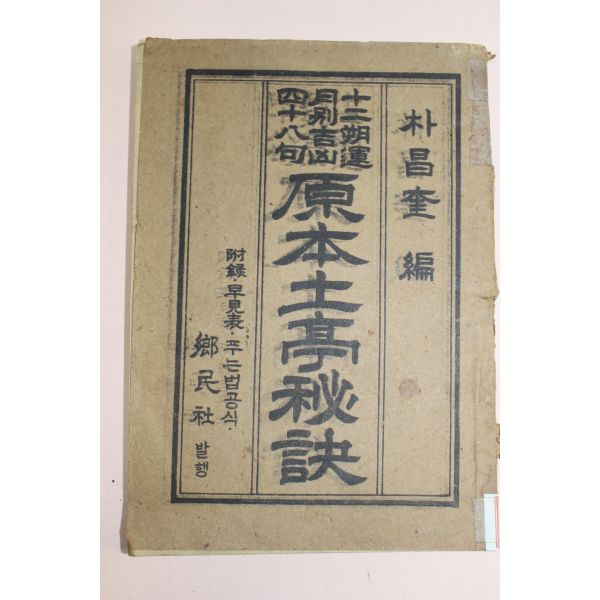 朴昌奎 編
十二朔運
月別吉凶
四十八句
原本土亭秘訣
附錄·早見表·푸는법공식·
鄕民社 발행